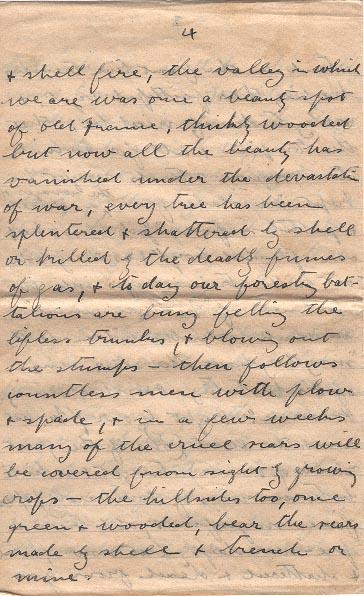 4
& shell fire, the valley in which
we are was once a beauty spot
of old France, thickly wooded
but now all the beauty has
vanished under the devastate
of war, every tree has been
splintered & shattered by shell
or killed by the deadly fumes
of gas, & to day our forestry bat-
talions are busy felling the
lifeless trunks, & blowing out
the stumps – then follows
countless men with plow
& spade, & in a few weeks
many of the cruel scars will
be covered from sight by growing
crops – the hillsides too, once
green & wooded, bear the scars
made by shell & trench or
mine